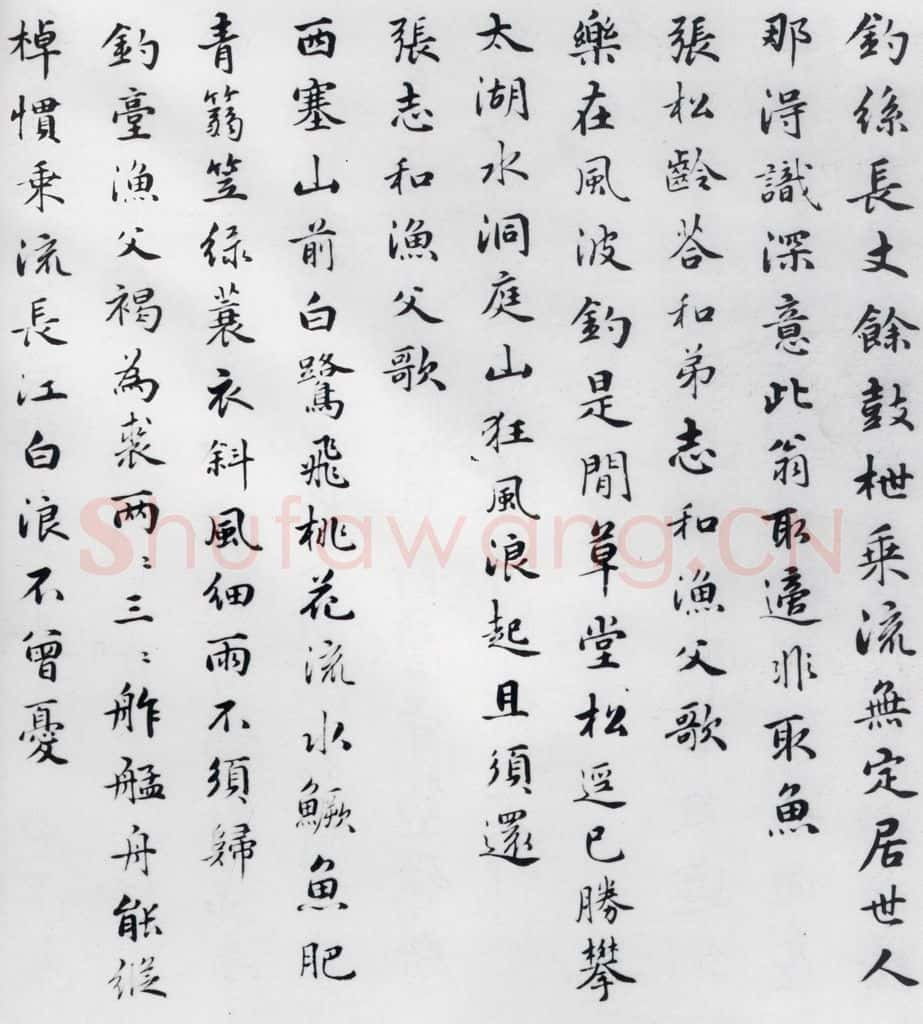 釣絲長丈餘鼓枻乘流無定居世人
那淂識深意此翁取適非取魚
張松齡荅和弟志和漁父歌
樂在風波釣是閒草堂松逕已勝攀
太湖水洞庭山狂風浪起且須還
張志和漁父歌
西塞山前白鷺飛桃花流水鱖魚肥
青篛笠緑蓑衣斜風細雨不須歸
釣臺漁父褐為裘兩〻三〻舴艋舟能縱
棹慣乘流長江白浪不曾憂
Shufawang.CN